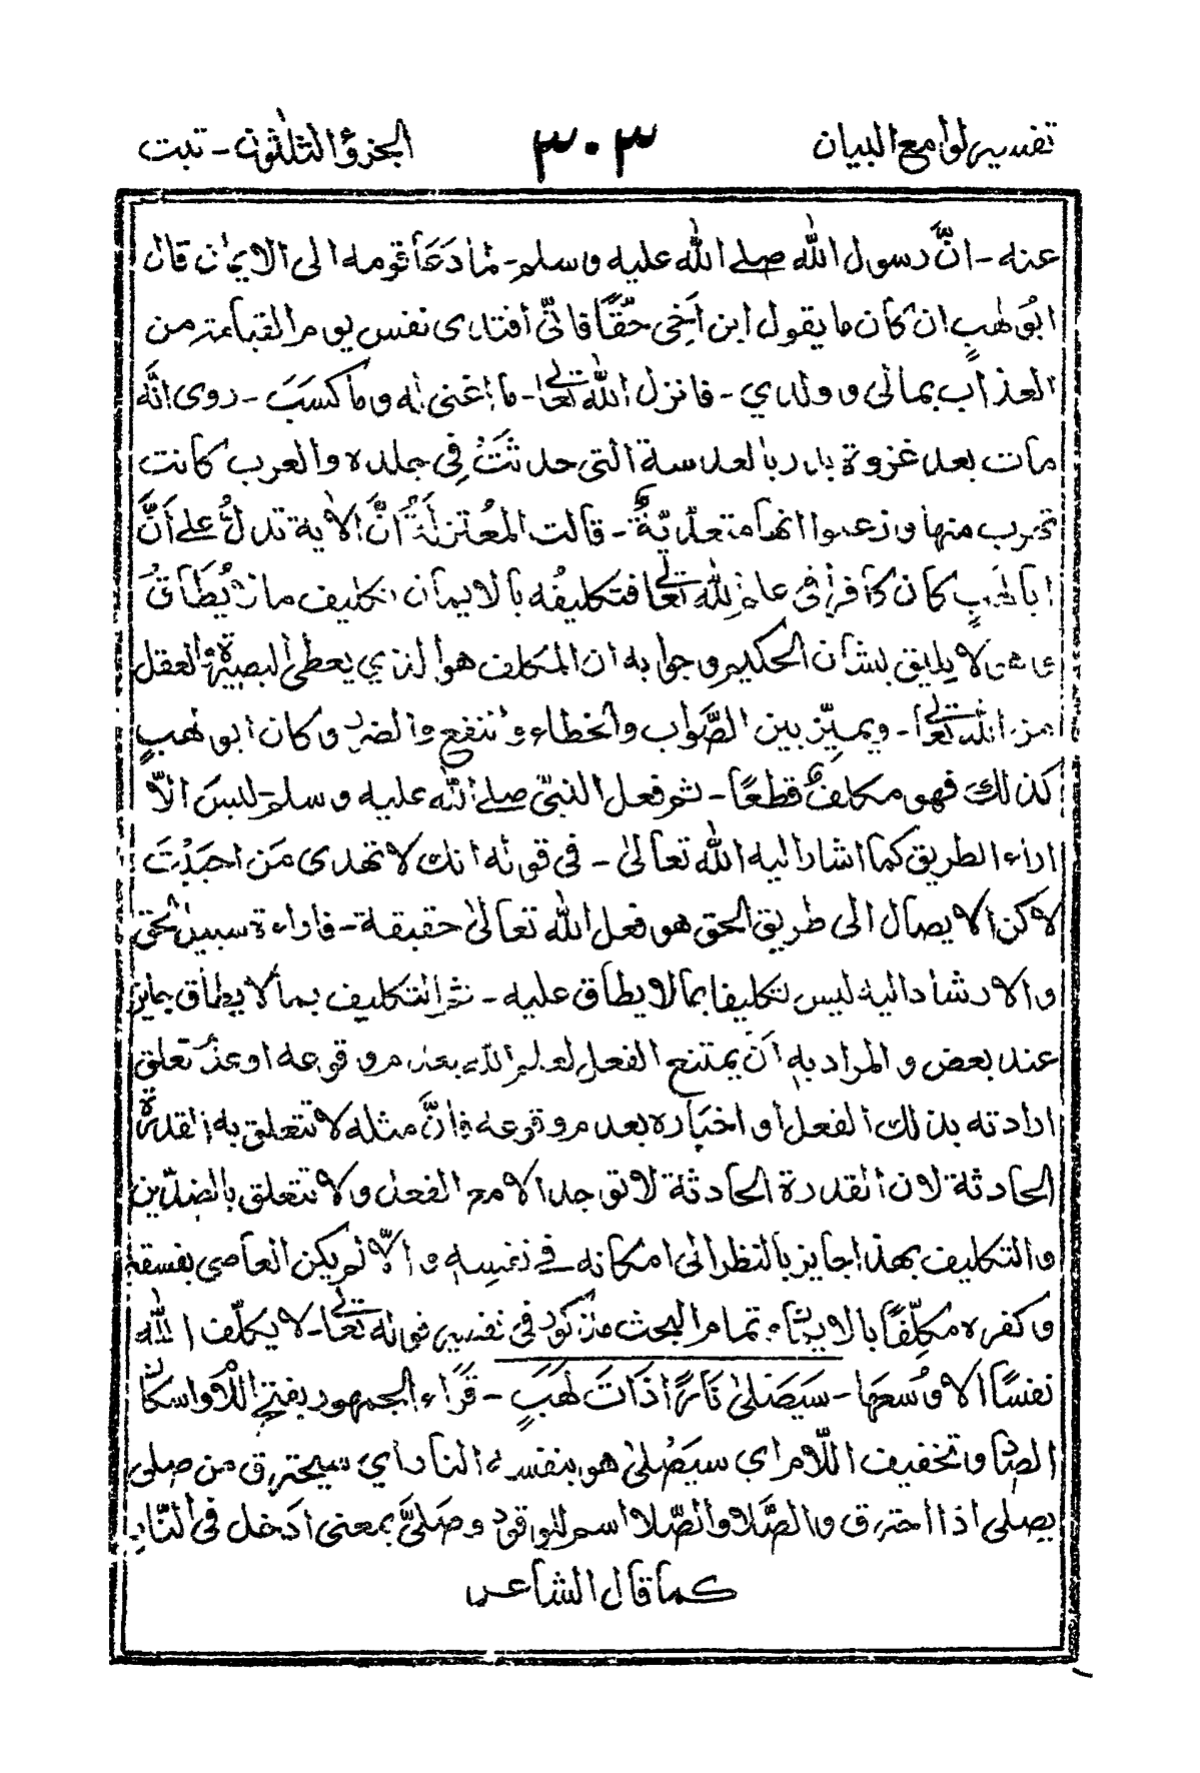 تفسير لوامع البيان ٣٠٣ الجزؤ الثلثون - تبت
عنه - انَّ رسول الله صلے الله عليه وسلم - لمّا دَعَا قومه الى الايمان قال
ابُو لهبٍ ان كان ما يقول ابن اَخِى حقًّا فانّى افتدى نفسى يوم القيامة من
العذاب بمالى وولدي - فانزل الله تعالے - ما اغنى له وما كسَبَ - روى انَّه
مات بعد غزوة بدر بالعدسة التى حدثَتْ فِى جلده والعرب كانت
تهرب منها وزعموا انها متعدّيّةٌ - قالت المُعْتزلَةُ انَّ الاٰية تدلُّ علے اَنَّ
ابا لهبٍ كان كافرا فى علم الله تعالے فتكليفُه بالايمان تكليف ما لا يُطَاقُ
لا يليق بشأن الحكيم وجوابه ان المكلف هو الذي يعطى البصيرة العقل
من الله تعالے - ويميّز بين الصَّواب والخطاء والنفع والضر وكان ابو لهبٍ
كذلك فهو مكلفٌ قطعًا - ثم فعل النبىّ صلے الله عليه وسلم - ليسَ الاّ
اراء الطريق كما اشار اليه الله تعالىٰ - فى قوله انك لا تهدى مَن احبَبْتَ
لاكن الايصال الى طريق الحق هو فعل الله تعالىٰ حقيقة - فاراءة سبيل الحق
والارشاد اليه ليس تكليفا بما لا يطاق عليه - ثم التكليف بما لا يطاق جايز
عند بعض والمراد به اَن يمتنع الفعل لعلم الله بعدم وقوعه او عدم تعلق
ارادته بذلك الفعل او اخباره بعدم وقوعه فانَّ مثله لا تتعلق به القدرة
الحادثة لان القدرة الحادثة لا توجد الا مع الفعل ولا تتعلق بالضدّين
والتكليف بهذا جايز بالنظر الى امكانه فے نفسِه والاّ لم يكن العاصى بفسقه
وكفره مكلّفًا بالايمان، تمام البحث مذكور فى تفسير قوله تعالے - لا يكلّف الله
نفسًا الا وُسعَها - سَيَصَلىٰ نَارًا ذَاتَ لهَبٍ - قَرَاء الجمهور بفتح اللام واسكان
الصاد وتخفيف اللّام اى سيَصْلىٰ هو بنفسه النار اي سيحترق من صلى
يصلى اذا احترق والصَّلا والصِّلا اسم للوقود وصَلىَّ بمعنى ادَخل فى النّار
كما قال الشاعر